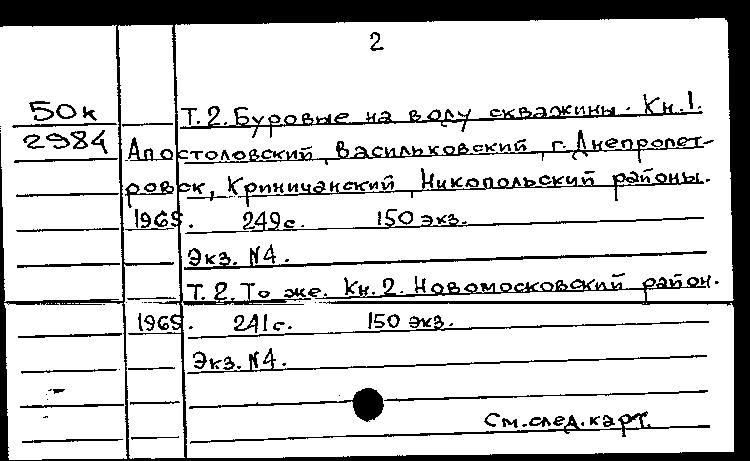 2
50к
Т.2. Буровые на воду скважины. Кн.1.
2984
Апостоловский, Васильковский, г. Днепропет-
ровск, Криничанский, Никопольский районы.
1965. 249с. 150 экз.
Экз. №4.
Т.2. То же. Кн.2. Новомосковский район.
1965. 241с. 150 экз.
Экз. №4.
См. след. карт.